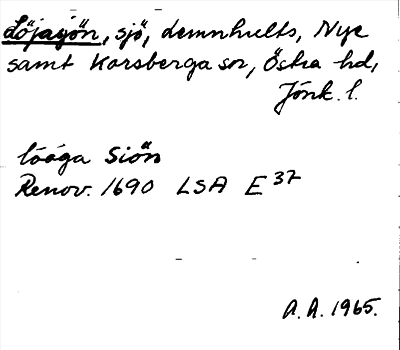 Löjasjön, sjö, Lemnhults, Nye
samt Korsberga snr, Östra hd,
Jönk. l.
lööga Siön
Renov. 1690 LSA E 37
A. A. 1965.